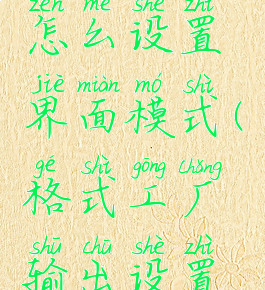 zěn me shè zhì
怎么设置
jiè miàn mó shì
界面模式(
gé shì gōng chǎng
格式工厂
shū chū shè zhì
输出设置